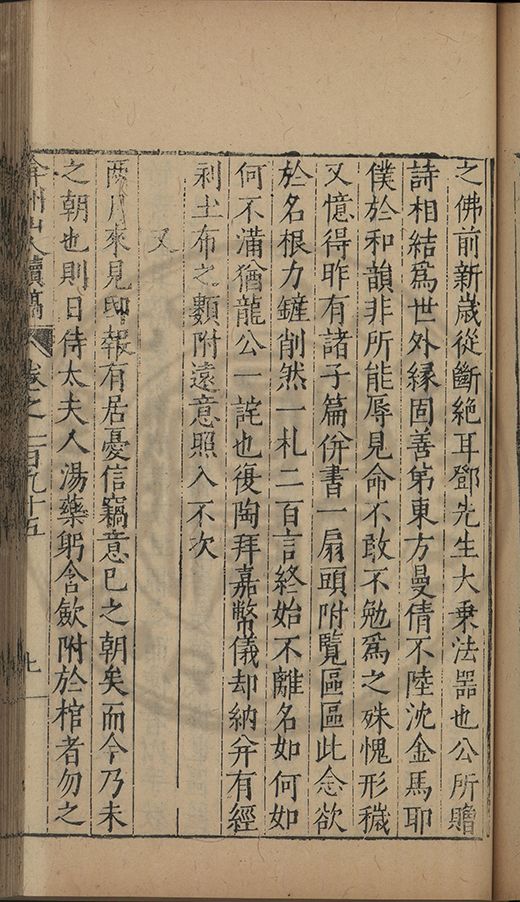 之佛前新歲從斷絕耳鄧先生大乗法器也公所贈
詩相結爲世外緣固善第東方曼倩不陸沈金馬耶
僕於和韻非所能辱見命不敢不勉爲之殊愧形穢
又憶得昨有諸子篇併書一扇頭附覽區區此念欲
於名根力鏟削然一札二百言終始不離名如何如
何不滿猶龍公一詫也復陶拜嘉幣儀却納并有經
剎土布之顡附遠意照入不次
又
兩月來見邸報有居憂信竊意已之朝矣而今乃未
之朝也則日侍太夫人湯藥躬含歛附於棺者勿之
弇州山人續稿 卷之一百九十五 七